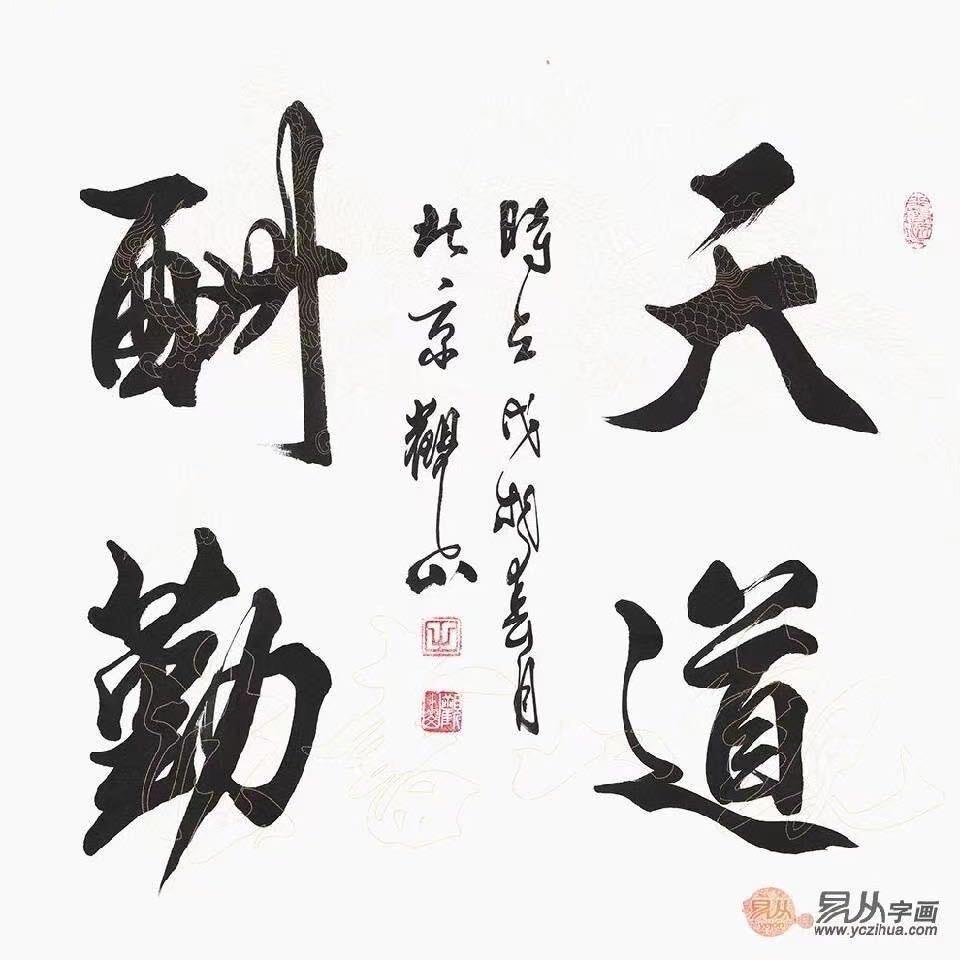 天道
時戊戌春月
北京觀山
酬勤
易从
易从字画
www.yczihua.com